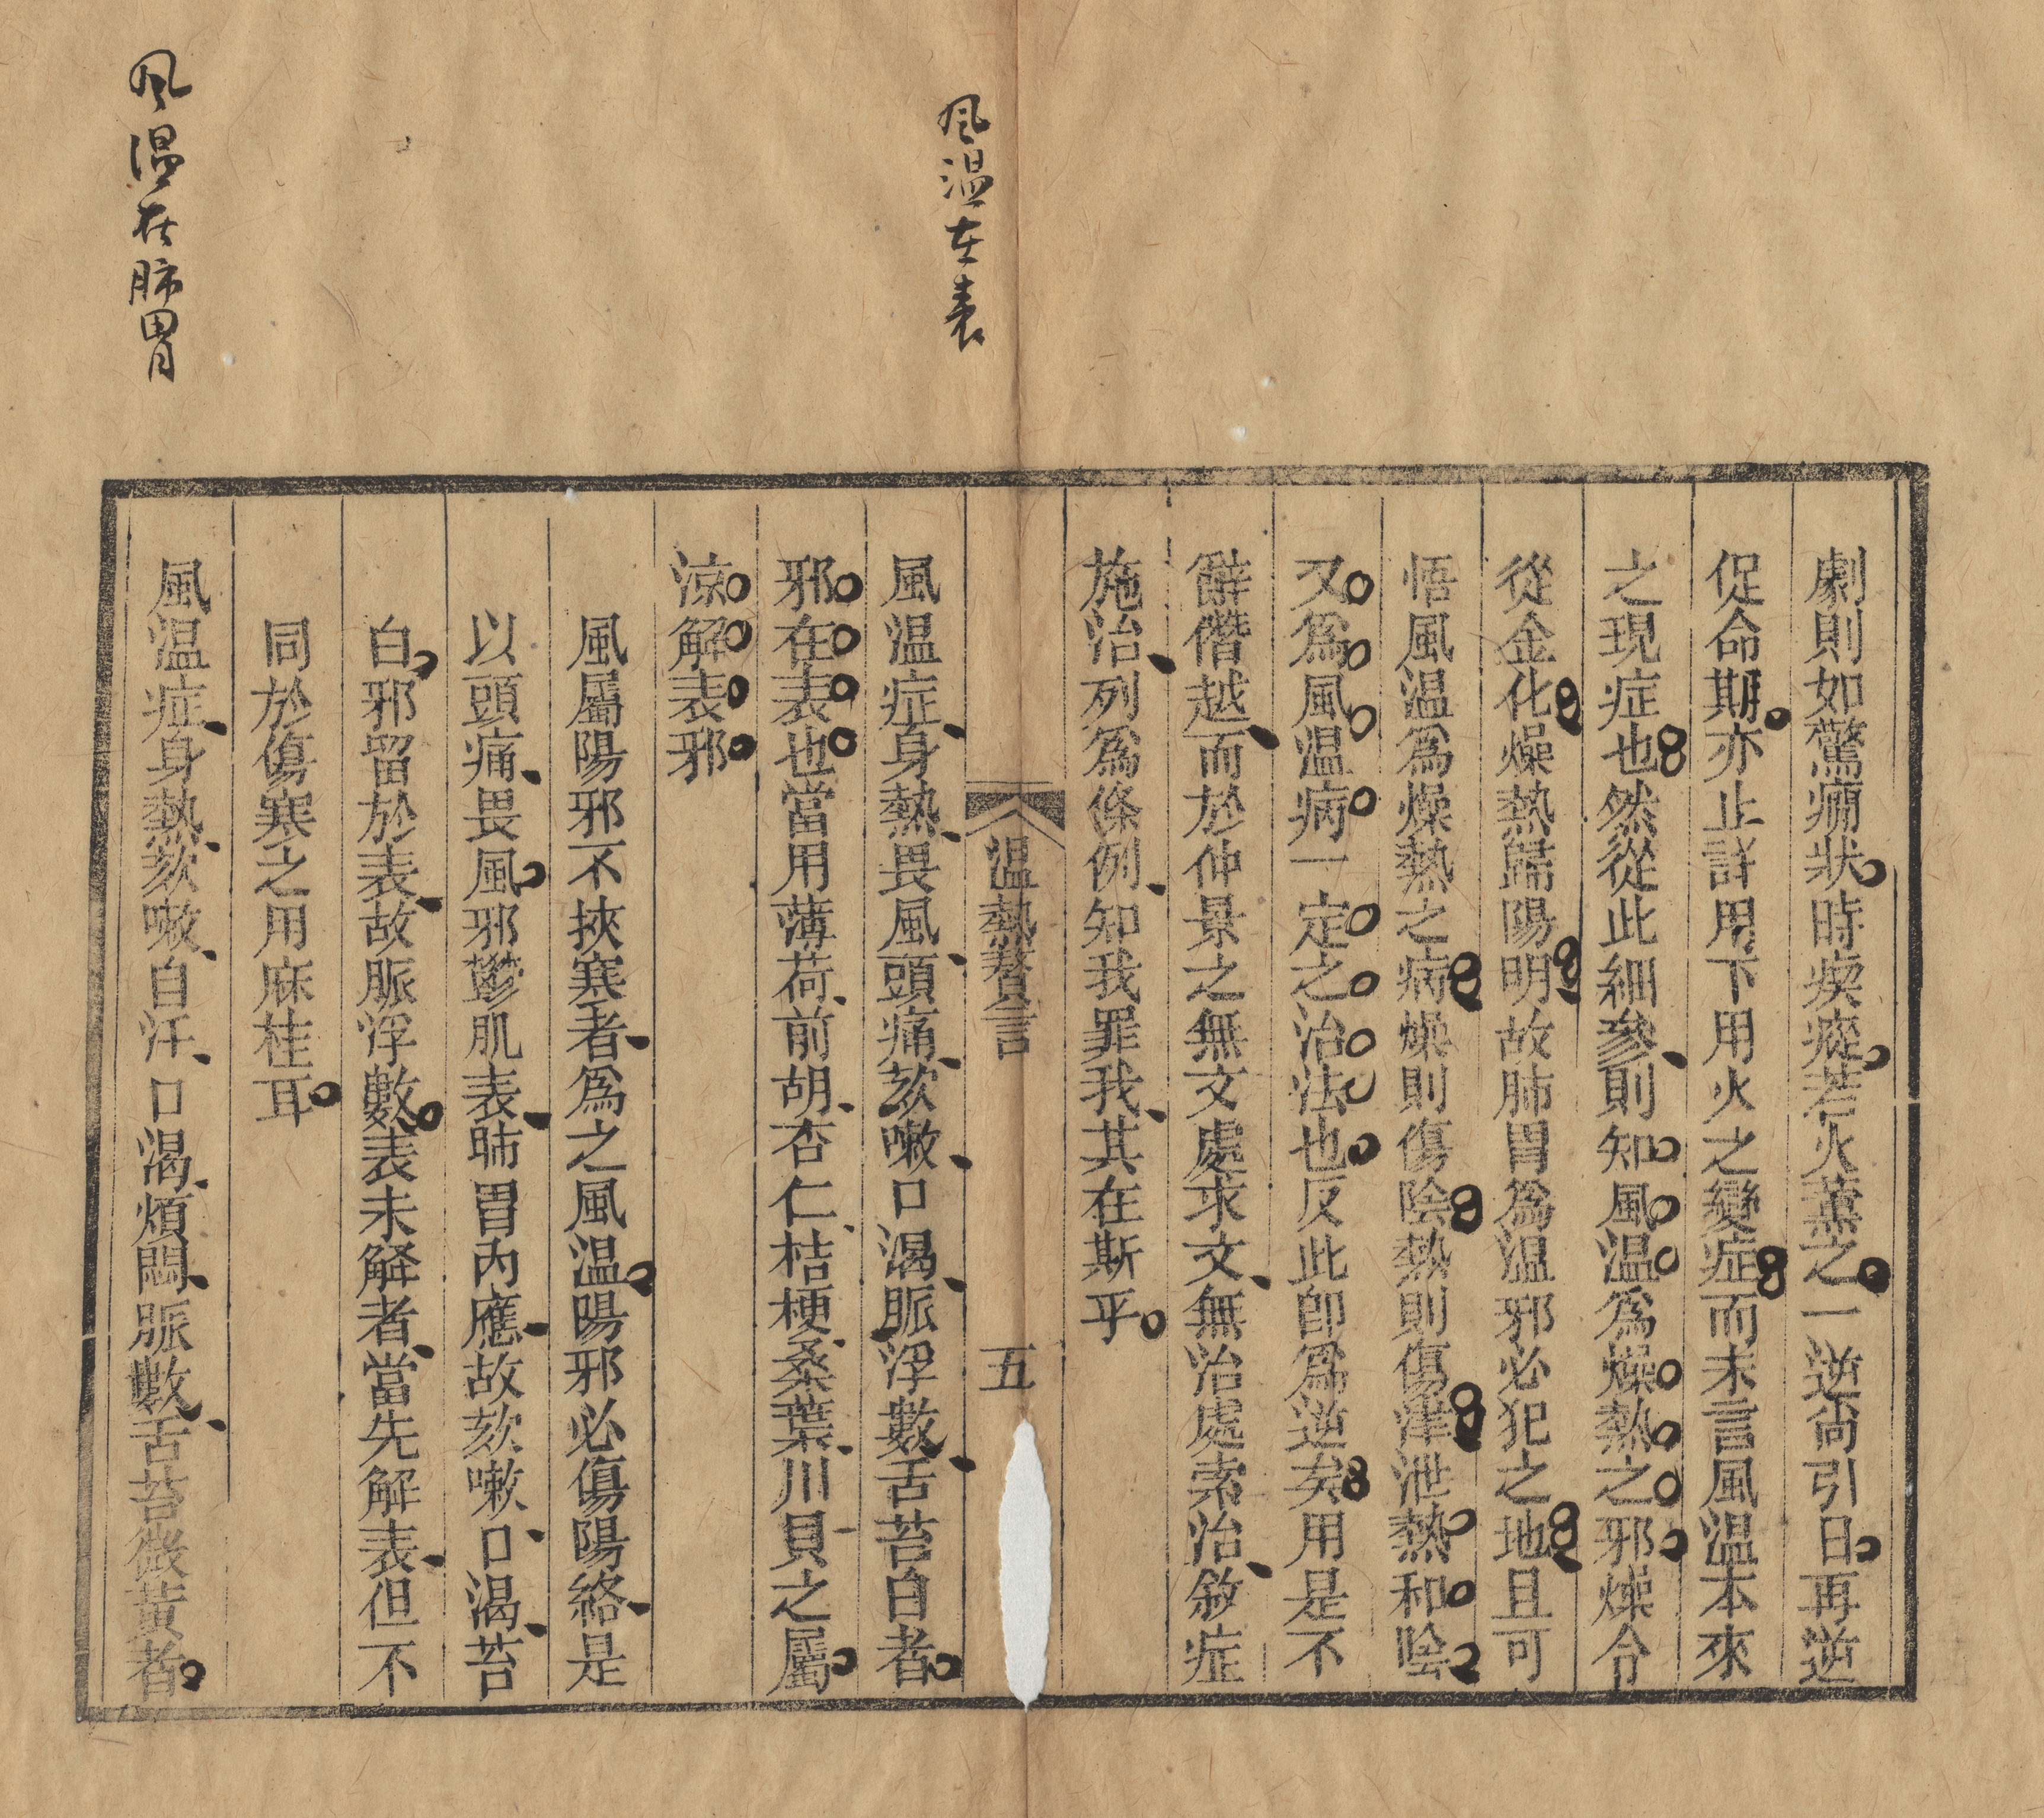 劇則如驚癇狀時瘈瘲若火薰之一逆尚引日再逆
促命期亦止詳用下用火之變症而未言風温本來
之現症也然從此細參則知風温爲燥熱之邪燥令
從金化燥熱歸陽明故肺胃爲温邪必犯之地且可
悟風温爲燥熱之病燥則傷陰熱則傷津泄熱和陰
又爲風温病一定之治法也反此卽爲逆矣用是不
辭僭越而於仲景之無文處求文無治處索治敘症
施治列爲條例知我罪我其在斯乎
温熱贅言
五
風温在表
風温症身熱畏風頭痛欬嗽口渴脈浮數舌苔白者
邪在表也當用薄荷前胡杏仁桔梗桑葉川貝之屬
涼解表邪
風屬陽邪不挾寒者爲之風温陽邪必傷陽絡是
以頭痛畏風邪鬱肌表肺胃內應故欬嗽口渴苔
白邪留於表故脈浮數表未解者當先解表但不
同於傷寒之用麻桂耳
風温在肺胃
風温症身熱欬嗽自汗口渴煩悶脈數舌苔微黃者